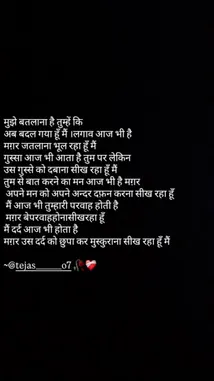 मुझे बतलाना है तुम्हें कि
अब बदल गया हूँ मैं ।लगाव आज भी है
मग़र जतलाना भूल रहा हूँ मैं
गुस्सा आज भी आता है तुम पर लेकिन
उस गुस्से को दबाना सीख रहा हूँ मैं
तुम से बात करने का मन आज भी है मग़र
अपने मन को अपने अन्दर दफ़न करना सीख रहा हूँ
मैं आज भी तुम्हारी परवाह होती है
मग़र बेपरवाहहोनासीखरहा हूँ
मैं दर्द आज भी होता है
मग़र उस दर्द को छुपा कर मुस्कुराना सीख रहा हूँ मैं
~@tejas_____o7 🥀❤️‍🩹